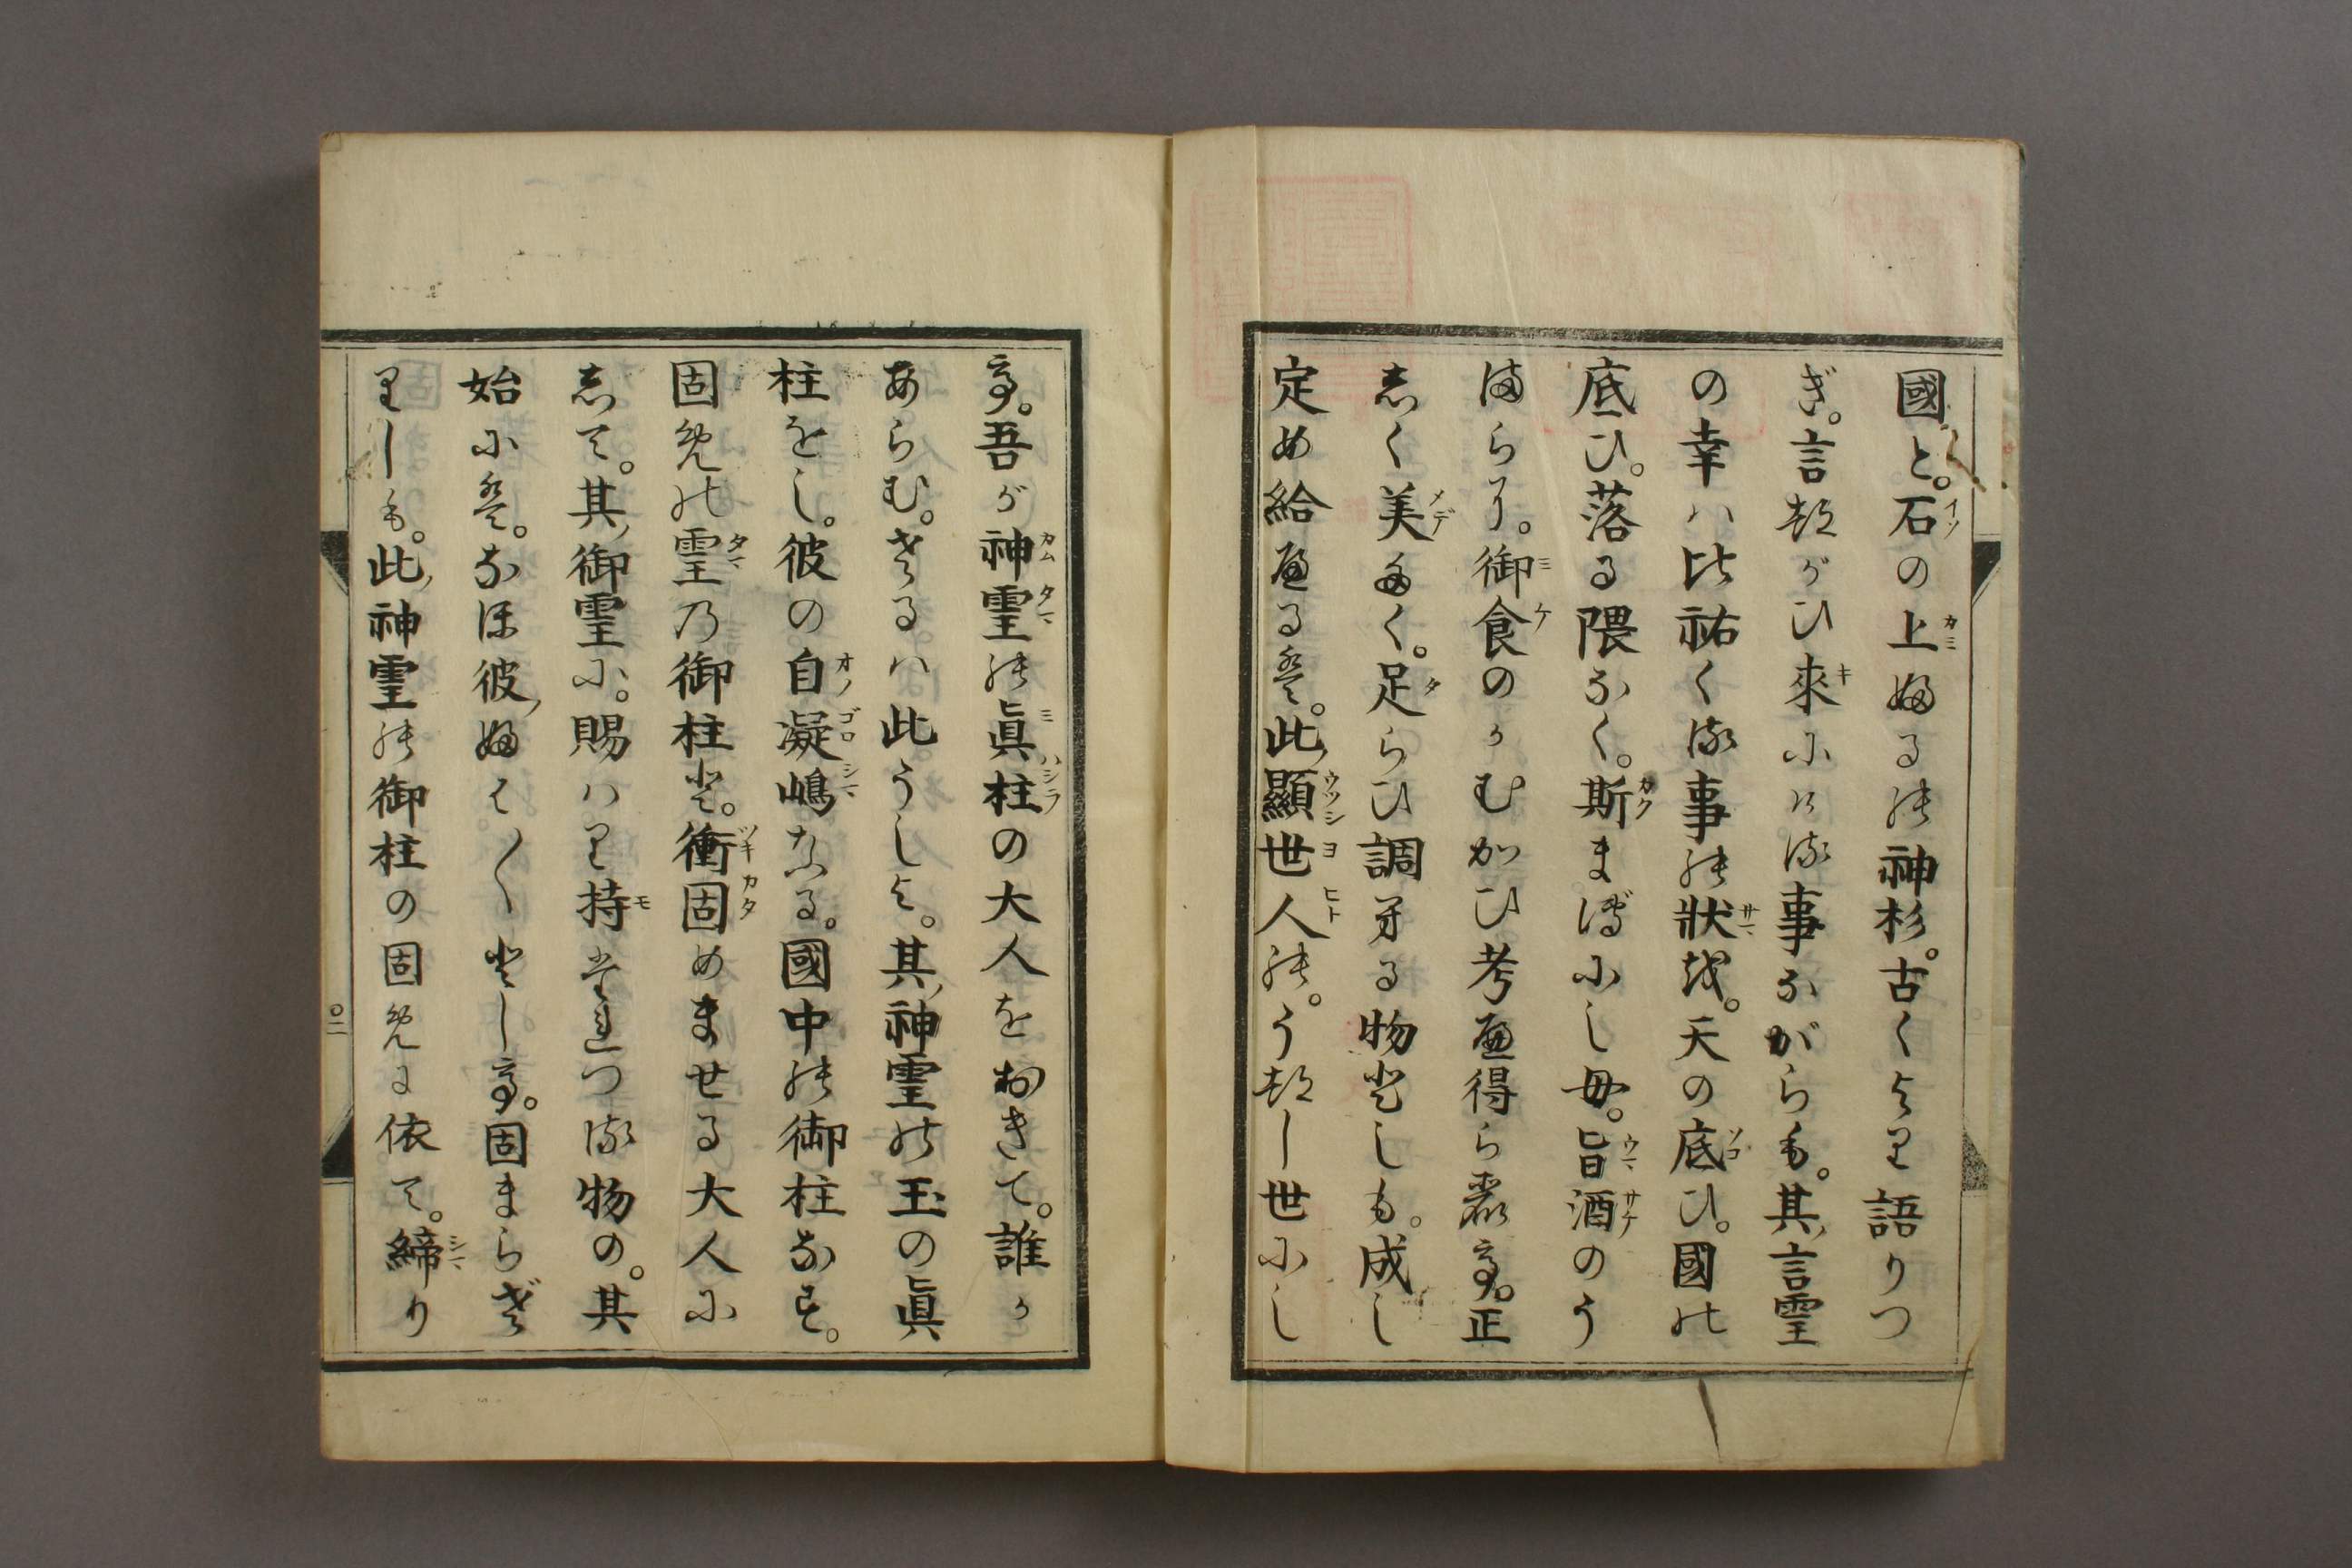 國と。石の上ふるの神杉。古くより語りつ
ぎ。言つがひ來にける事ながらも。其言靈
の幸ハ比祐くる事の狀を。天の底ひ。國の
底ひ。落る隈なく。斯までにしも。旨酒のう
まらに。御食のかむかひ考へ得られて。正
しく美たく。足らひ調へる物としも。成し
定め給へるは。此顯世人の。うつし世にし
て。吾が神靈の眞柱の大人をおきて。誰か
あらむ。さるハ此うしよ。其神靈の玉の眞
柱をし。彼の自凝嶋なる。國中の御柱なす。
固めの靈の御柱と。衝固めませる大人に
して。其御靈に。賜ハり持たれつる物の。其
始には。なほ彼ふは〱として。固まらざ
りしも。此神靈の御柱の固めに依て。締り
二